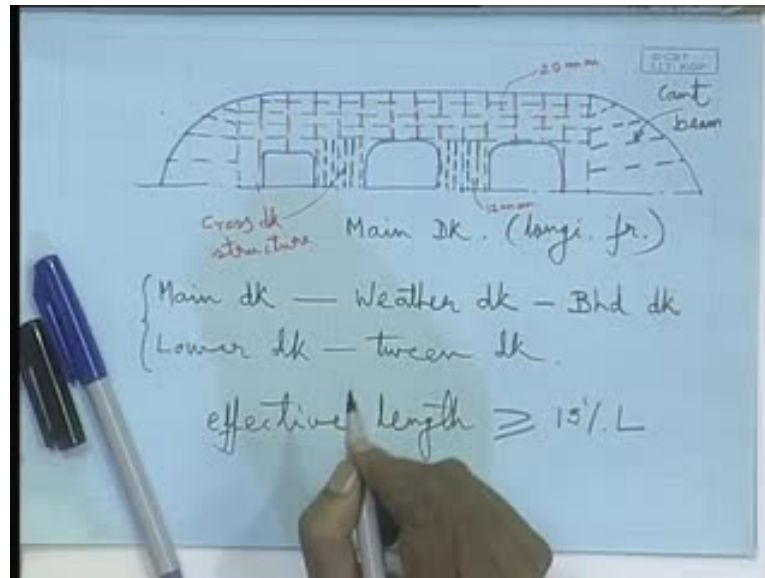 20 mm
Cant
beam
Cross dk
structure
12mm
Main Dk. (longi. fr.)
Main dk — Weather dk — Bhd dk
Lower dk — tween dk.
effective length ≥ 15% L